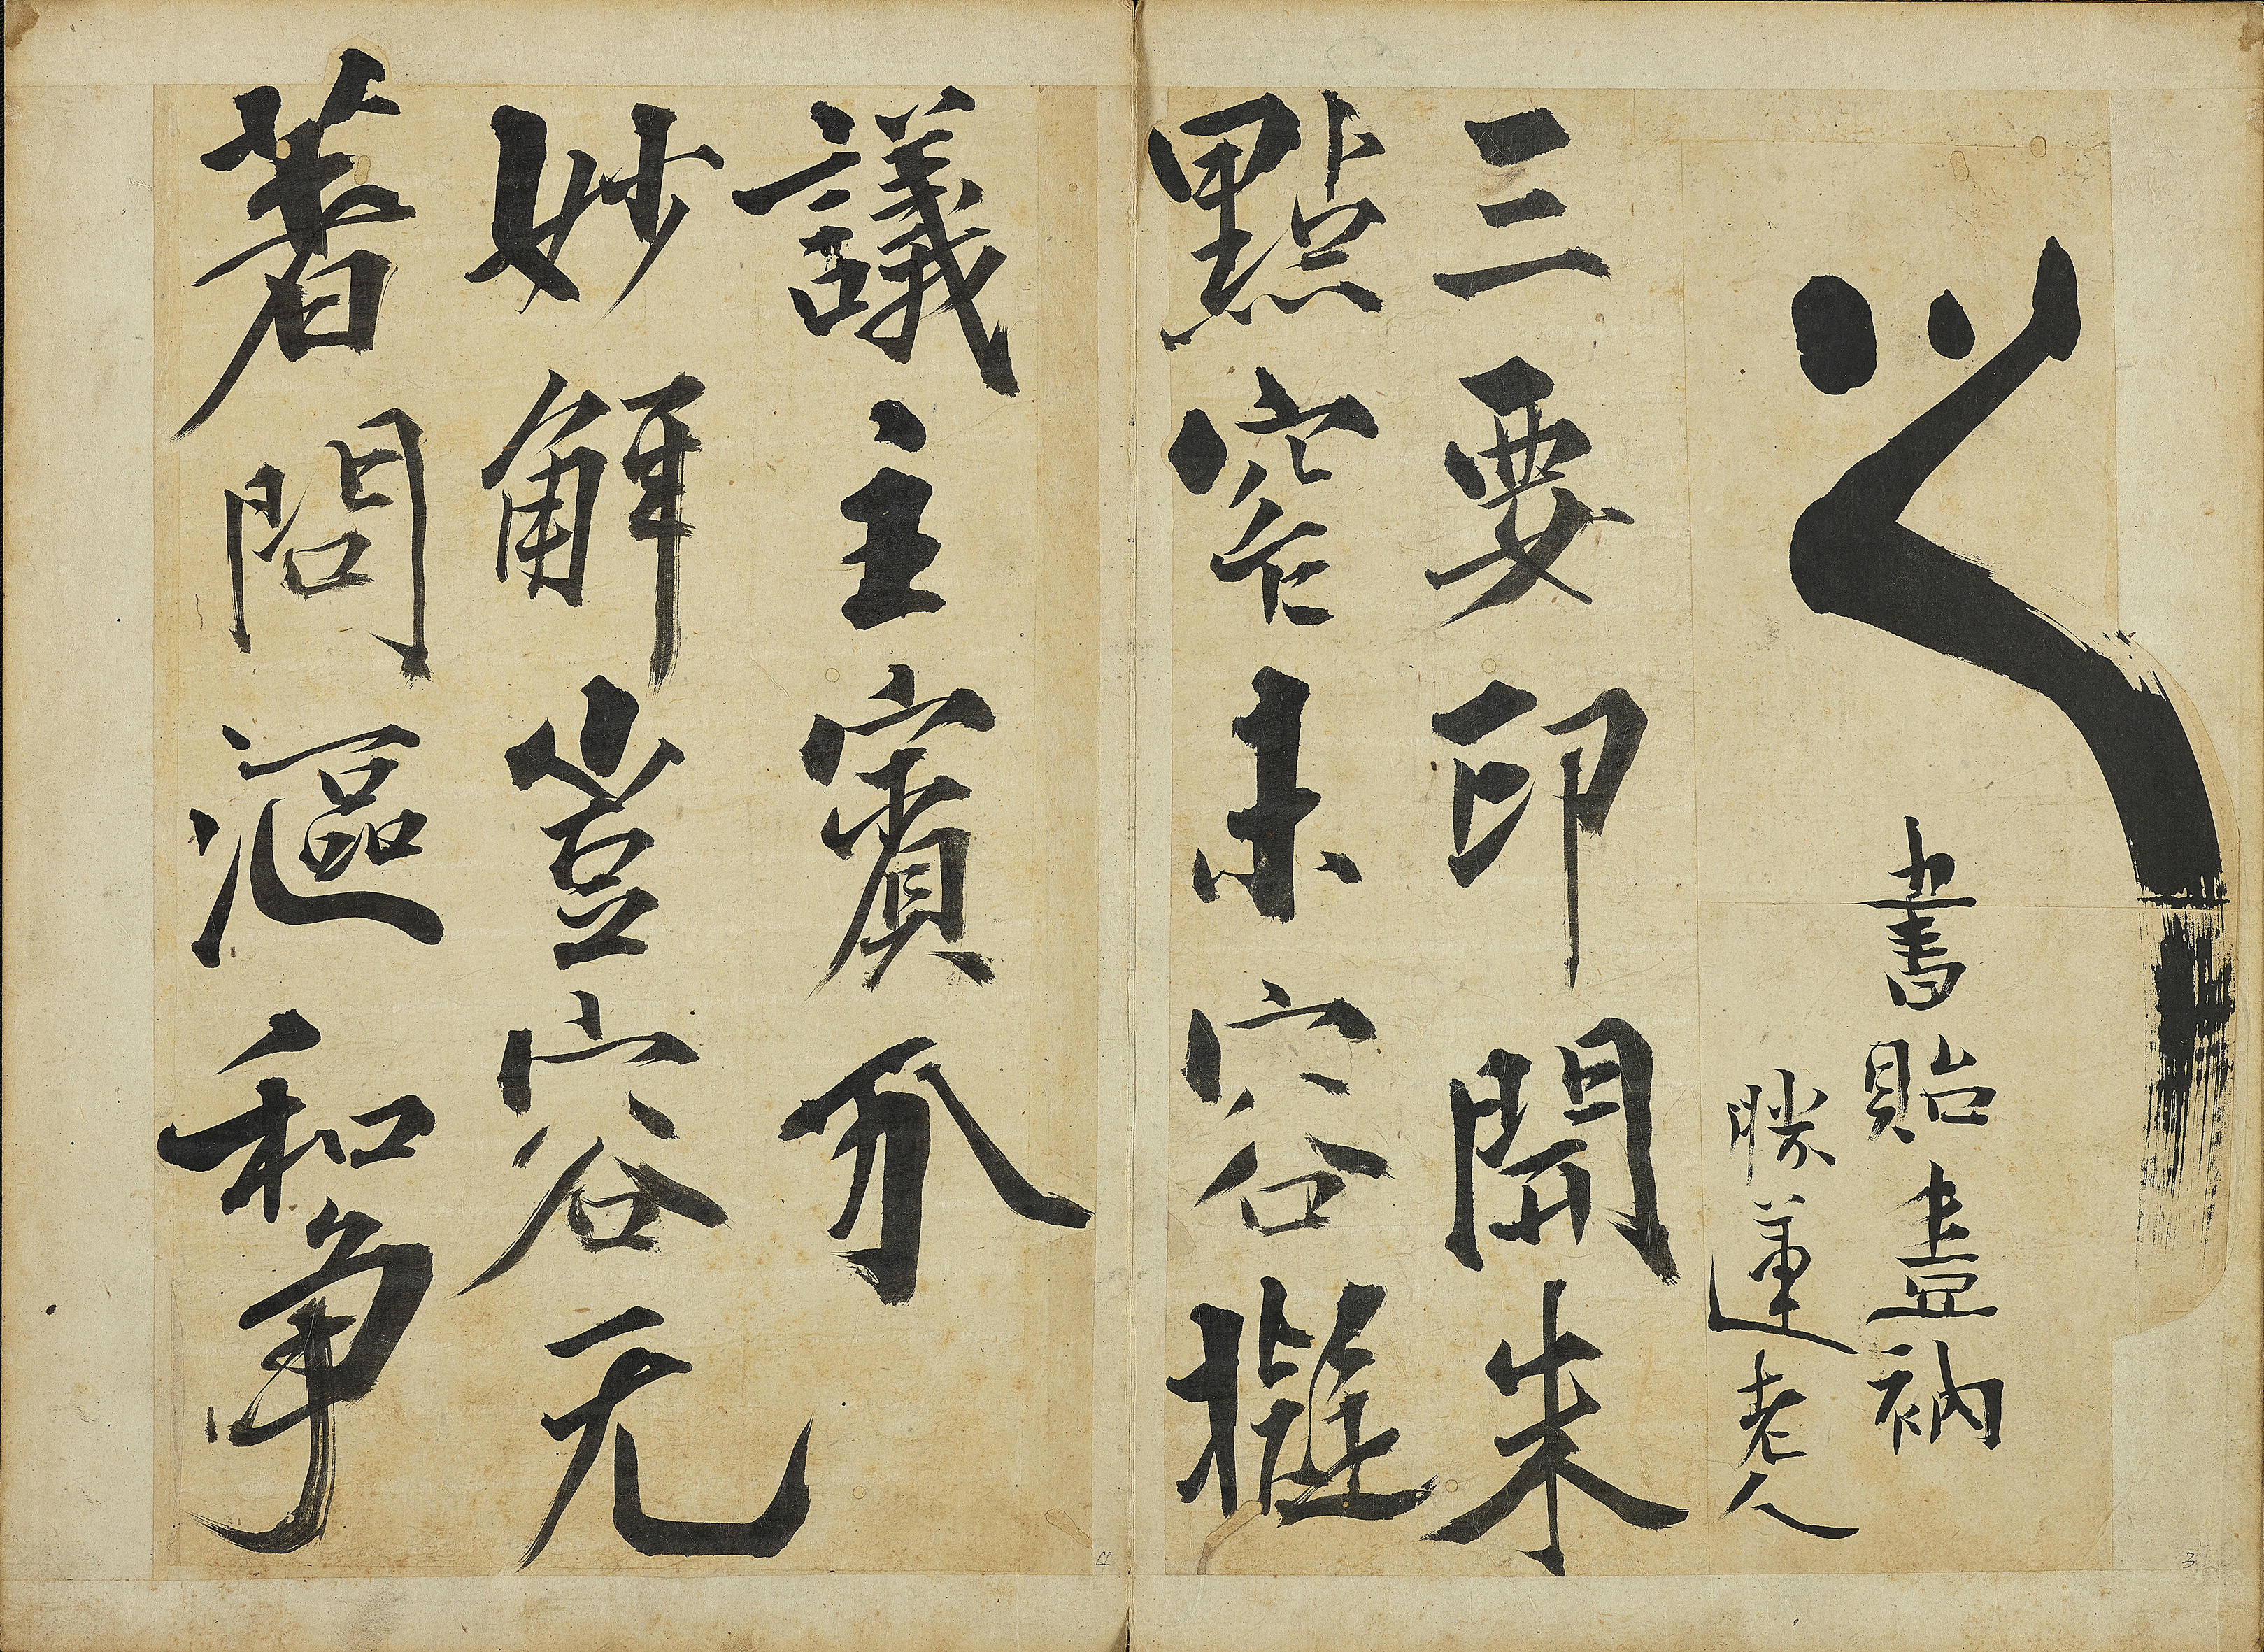 書貽壹衲
勝蓮老人
三要印開朱
點窄未容擬
議主賓分
妙解豈容无
著問漚和爭
3
4